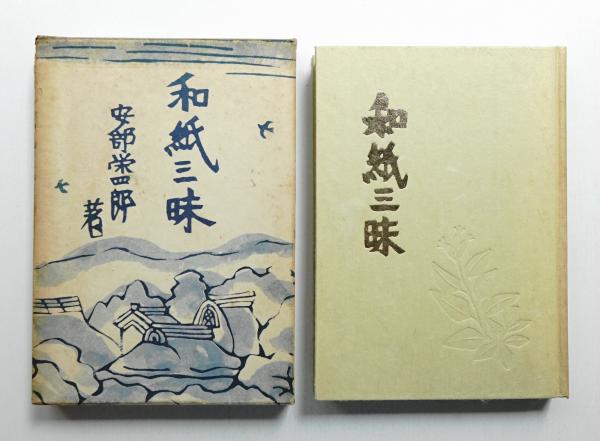 和紙三昧
安部栄四郎
著
和紙三昧